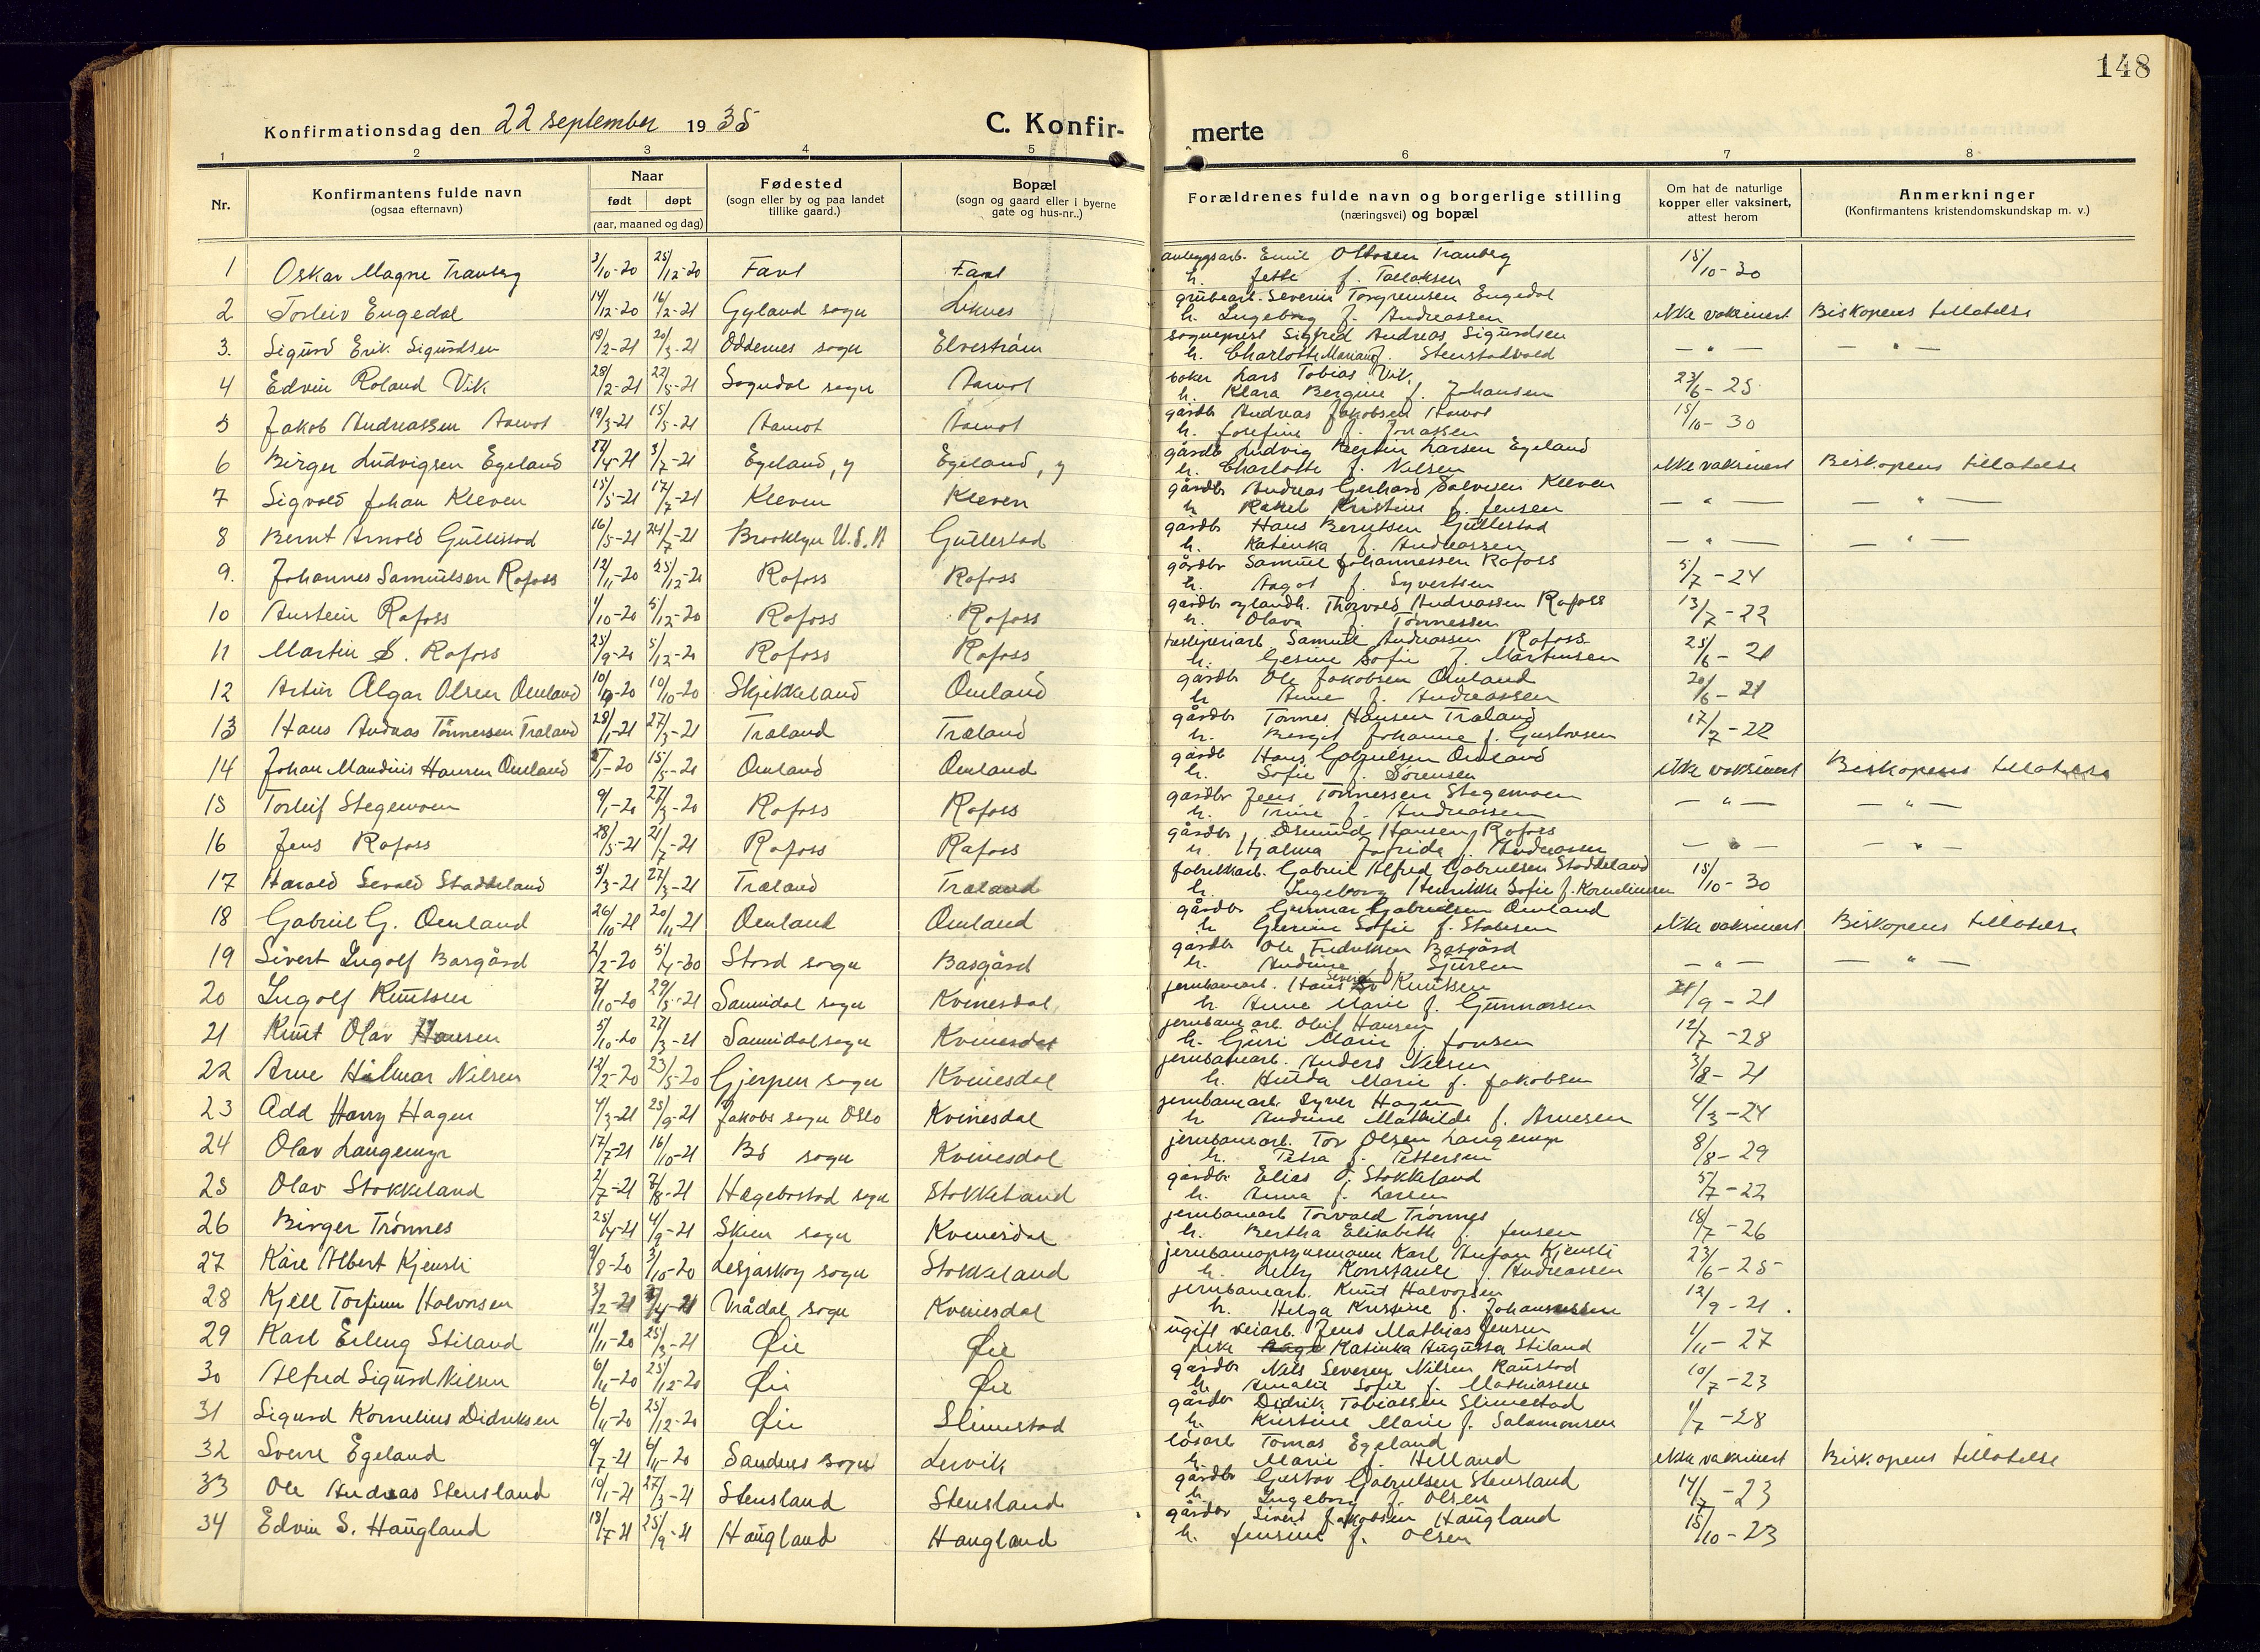 148
Konfirmationsdag den 22 september 1935
C. Konfir-
merte
1 2 3 4 5 6 7 8
Nr.
Konfirmantens fulde navn
(ogsaa efternavn)
Naar
født døpt
(aar, maaned og dag)
Fødested
(sogn eller by og paa landet
tillike gaard.)
Bopæl
(sogn og gaard eller i byerne
gate og hus-nr.,)
Forældrenes fulde navn og borgerlige stilling
(næringsvei) og bopæl
Om hat de naturlige
kopper eller vaksinert,
attest herom
Anmerkninger
(Konfirmantens kristendomskundskap m. v.)
1 Oskar Magne Tranberg 3/10-20 25/12-20 Favt Favt anleggsarb. Emil Ottosen Tranberg 15/10-30
h. Jette f. Tallaksen
2 Torleiv Engedal 14/12-20 16/2-21 Gyland sogn Liknes grubearb. Severin Torgremsen Engedal ikke vaksinert Biskopens tillatelse
h. Ingeborg f. Andreassen
3. Sigurd Erik Sigurdsen 19/2-21 20/3-21 Oddernes sogn Elvestrám sogneprest Sigfred Andreas Sigurdsen — " — — " —
h. Charlotte Mariane f. Stenstadvold
4 Edvin Roland Vik 28/2-21 22/5-21 Sogndal sogn Aamot baker Lars Tobias Vik. 23/6-25
h. Klara Bergine f. Johansen
5 Jakob Andreassen Aamot 19/3-21 15/5-21 Aamot Aamot gårdbr Andreas Jakobsen Aamot 15/10-30
h. Josefine f. Jonassen
6 Birger Ludvigsen Egeland 27/4-21 3/7-21 Egeland, y Egeland, y gårdb Ludvig Bertin Larsen Egeland ikke vaksinert Biskopens tillatelse
h. Charlotte f. Nilsen
7 Sigvald Johan Kleven 15/5-21 17/7-21 Kleven Kleven gårdbr Andreas Gerhard Salvesen Kleven — " — — " —
h Rakel Kristine f. Jensen
8 Bernt Arnold Gullestad 16/5-21 24/7-21 Brooklyn U.S.A Gullestad gårdbr Hans Berntsen Gullestad — " — — " —
h. Katinka f. Andreassen
9. Johannes Samuelsen Rafoss 12/11-20 25/12-20 Rafoss Rafoss gårdbr Samuel Johannessen Rafoss 5/7-24
h. Aagot f. Syvertsen
10 Austein Rafoss 1/10-20 5/12-20 Rafoss Rafoss gårdbr oglandh. Thorvald Andreassen Rafoss 13/7-22
h. Olava f. Tønnessen
11 Martin S. Rafoss 25/9-20 5/12-20 Rafoss Rafoss tresliperiarb Samuel Andreassen Rafoss 25/6-21
h. Gesine Sofie f. Martinsen
12 Artur Algar Olsen Omland 10/9-20 10/10-20 Skjekkeland Omland gårdbr Ole Jakobsen Omland 20/6-21
h Anne f. Andreassen
13 Hans Andreas Tønnessen Træland 28/1-21 27/3-21 Træland Træland gårdbr Tønnes Hansen Træland 17/7-22
h. Bergit Johanne f. Gustavsen
14 Johan Mandius Hansen Omland 2/1-20 15/5-20 Omland Omland gårdb Hans Gabrielsen Omland ikke vaksinert Biskopens tillatelse
h. Sofie f. Sørensen
15 Torleif Stegemoen 9/1-20 27/3-20 Rafoss Rafoss gardbr Jens Tønnessen Stegemoen — " — — " —
h. Trine f. Andreassen
16 Jens Rafoss 28/5-21 21/7-21 Rafoss Rafoss gårdbr Osmund Hansen Rafoss — " — — " —
h. Hjalma Jofrida f. Andreassen
17 Harald Sevald Staddeland 5/3-21 27/3-21 Træland Træland fabrikkarb. Gabriel Alfred Gabrielsen Staddeland 15/10-30
h. Ingeborg Henrikke Sofie f. Korneliussen
18 Gabriel G. Omland 26/10-21 20/11-21 Omland Omland gårdbr Gunnar Gabrielsen Omland ikke vaksinert Biskopens tillatelse
h Gurine Sofie f. Stolesen
19 Sivert Ingolf Basgård 2/2-20 5/4-20 Stord sogn Basgård gardbr Ole Fredriksen Basgård — " — — " —
h. Andrine f. Sjursen
20 Ingolf Knutsen 7/10-20 29/5-21 Sannidal sogn Kvinesdal jernbanearb. Hans Severin Knutsen 21/9-21
h. Anne Marie f. Gunnarsen
21 Knut Olav Hansen 5/10-20 27/3-21 Sannidal sogn Kvinesdal jernbane arb. Oluf Hansen 12/7-28
h. Guri Marie f. Jonsen
22 Arne Hilmar Nilsen 12/2-20 23/5-20 Gjerpen sogn Kvinesdal jernbanearb. Anders Nilsen 3/8-21
h. Hulda Marie f. Jakobsen
23 Add Harry Hagen 4/3-21 25/9-21 Jakobs sogn Oslo Kvinesdal jernbanearb. Syver Hagen 4/3-24
h Andrine Mathilde f. Arnesen
24 Olav Langemyr 17/7-21 16/10-21 Bø sogn Kvinesdal jernbanearb. Tor Olsen Langemyr 8/8-29
h. Petra f. Pettersen
25 Olav Stokkeland 2/7-21 7/8-21 Hægebostad sogn Stokkeland gårdbr Elias O. Stokkeland 5/7-22
h. Anna f. Larsen
26 Birger Trønnes 25/4-21 4/9-21 Skien sogn Kvinesdal jernbanearb Torvald Trønnes 18/7-26
h. Bertha Elisabeth f. Jensen
27 Kåre Albert Kjensli 9/8-20 3/10-20 Lesjaskog sogn Stokkeland jernbaneopsynsmann Karl Anton Kjensli 23/6-25
h. Lelly Konstanse f. Andreassen
28 Kjell Torfinn Halvorsen 3/2-21 Vrådal sogn Kvinesdal jernbanearb. Knut Halvorsen 12/9-21.
h. Helga Kristine f. Johannessen
29 Karl Erling Stiland 11/11-20 25/3-21 Øie Øie ugift veiarb. Jens Mathias Jensen 1/11-27
pike Katinka Augusta Stiland
30 Alfred Sigurd Nilsen 6/11-20 25/12-20 Øie Øie gårdbr Nils Severin Nilsen Raustad 10/7-23
h. Amalie Sofie f. Mathiassen
31 Sigurd Kornelius Didriksen 6/11-20 25/12-20 Øie Slimestad gårdbr Didrik Tobiassen Slimestad 1/7-28
h. Kristine Marie f. Salamonsen
32 Sverre Egeland 9/7-21 6/11-20 Sandnes sogn Lervik løsarb Tomas Egeland ikke vaksinert Biskopens tillatelse
h. Marie f. Helland
33 Ole Andreas Stensland 19/1-21 27/3-21 Stensland Stensland gårdbr Gustav Gabrielsen Stensland 14/7-23
h Ingeborg f. Olsen
34 Edvin S. Haugland 18/7-21 25/9-21 Haugland Haugland gårdbr Sivert Jakobsen Haugland 15/10-23
h. Jensine f. Olsen